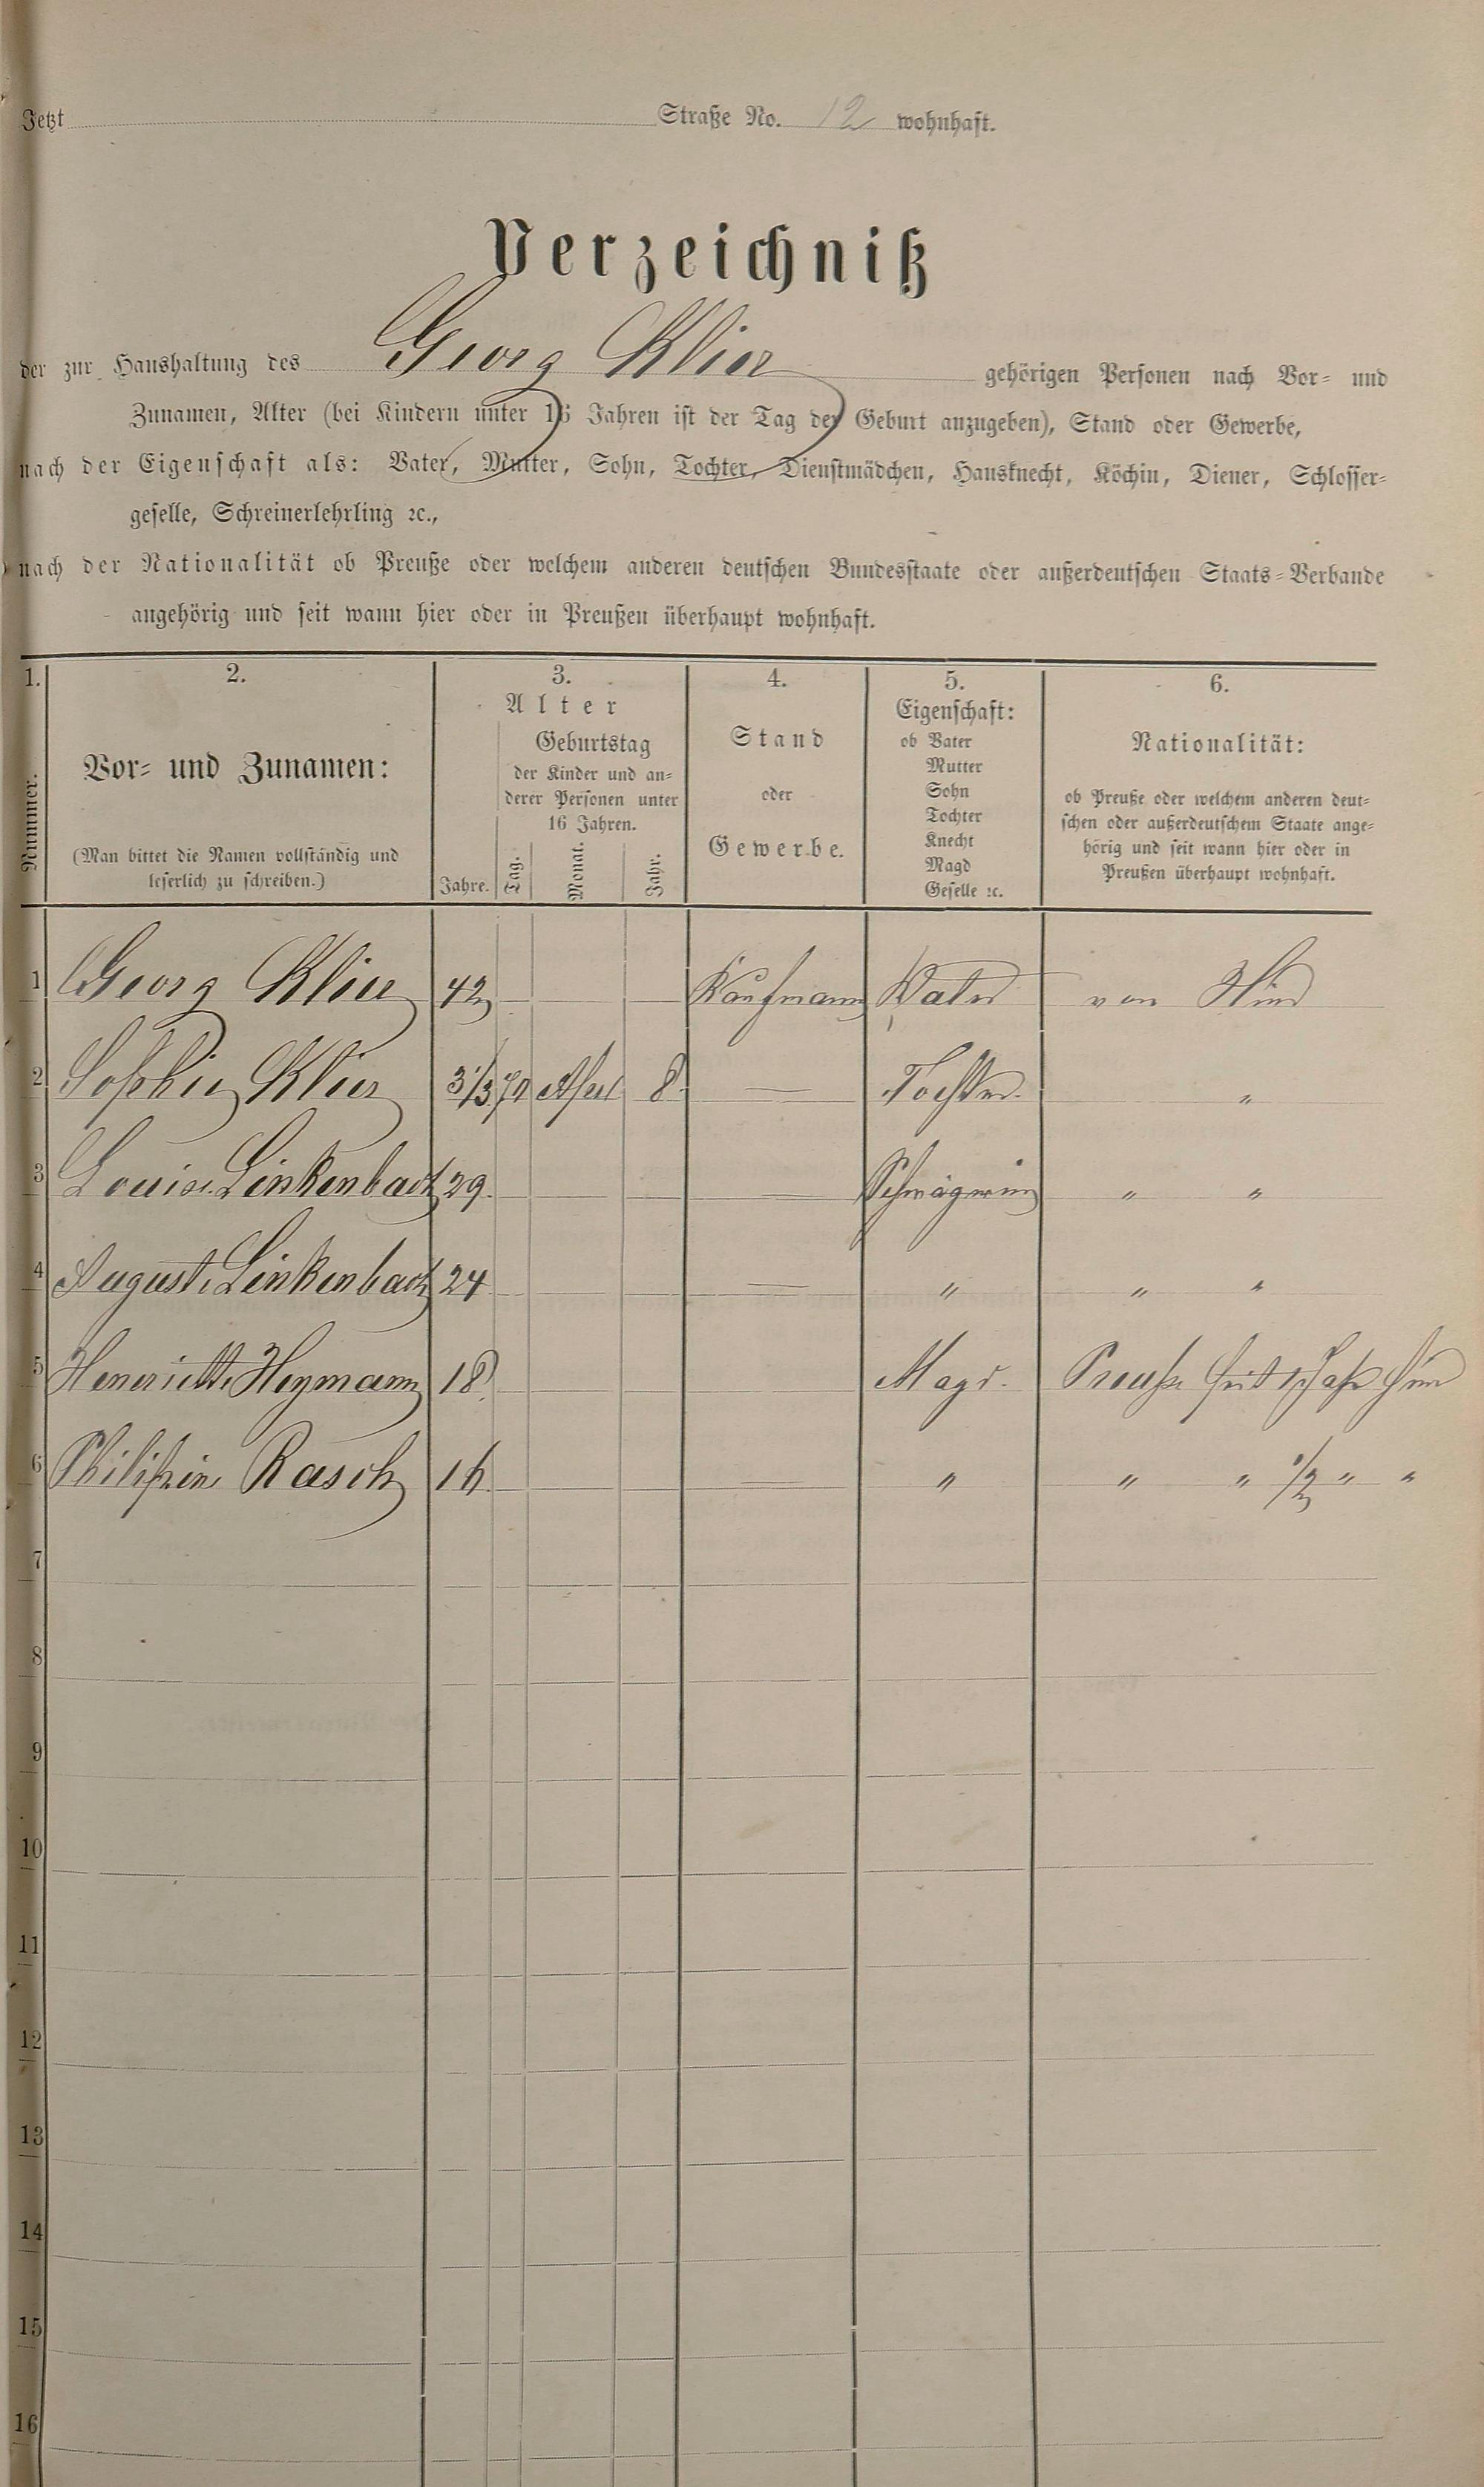 Jetzt Straße No. 12 wohnhaft.
Verzeichniß
der zur Haushaltung des Georg Klier gehörigen Personen nach Vor- und
Zunamen, Alter (bei Kindern unter 16 Jahren ist der Tag der Geburt anzugeben), Stand oder Gewerbe,
nach der Eigenschaft als: Vater, Mutter, Sohn, Tochter, Dienstmädchen, Hausknecht, Köchin, Diener, Schlosser-
geselle, Schreinerlehrling ꝛc.,
nach der Nationalität ob Preuße oder welchem anderen deutschen Bundesstaate oder außerdeutschen Staats-Verbande
angehörig und seit wann hier oder in Preußen überhaupt wohnhaft.
1. 2. 3. 4. 5. 6.
Nummer.
Vor- und Zunamen:
(Man bittet die Namen vollständig und
leserlich zu schreiben.)
Alter
Jahre.
Geburtstag
der Kinder und an-
derer Personen unter
16 Jahren.
Tag. Monat. Jahr.
Stand
oder
Gewerbe.
Eigenschaft:
ob Vater
Mutter
Sohn
Tochter
Knecht
Magd
Geselle ꝛc.
Nationalität:
ob Preuße oder welchem anderen deut-
schen oder außerdeutschem Staate ange-
hörig und seit wann hier oder in
Preußen überhaupt wohnhaft.
1 Georg Klier 42 Kaufmann Vater von
2 Sophie Klier 8 — Tochter "
3 Louise Linkenbach 29 — Schwägerin " "
4 Auguste Linkenbach 24 — " " "
5 Henriette Heymann 18 Magd. Preuße seit 1 Jahr hier
6 Philippine Rasch 16 — " " " 1/2 " "
7
8
9
10
11
12
13
14
15
16